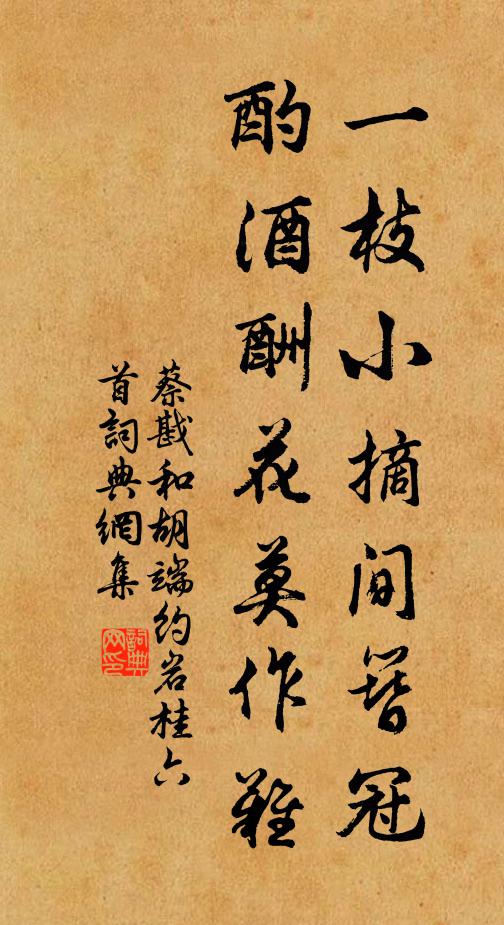 一枝小摘間簪冠
酌酒酬花莫作難
蔡戡和胡端約岩桂六
首詞典網集
詞典
网印